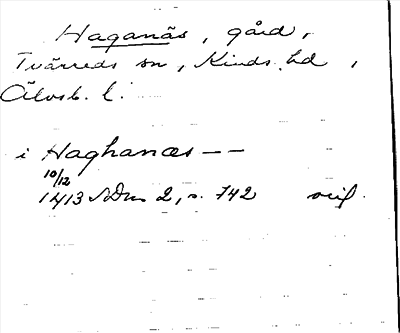 Haganäs, gård,
Tvärreds sn, Kinds hd,
Älvsb. l.
i Haghanæs --
10/12
1413 SDns 2, s. 742 orig.